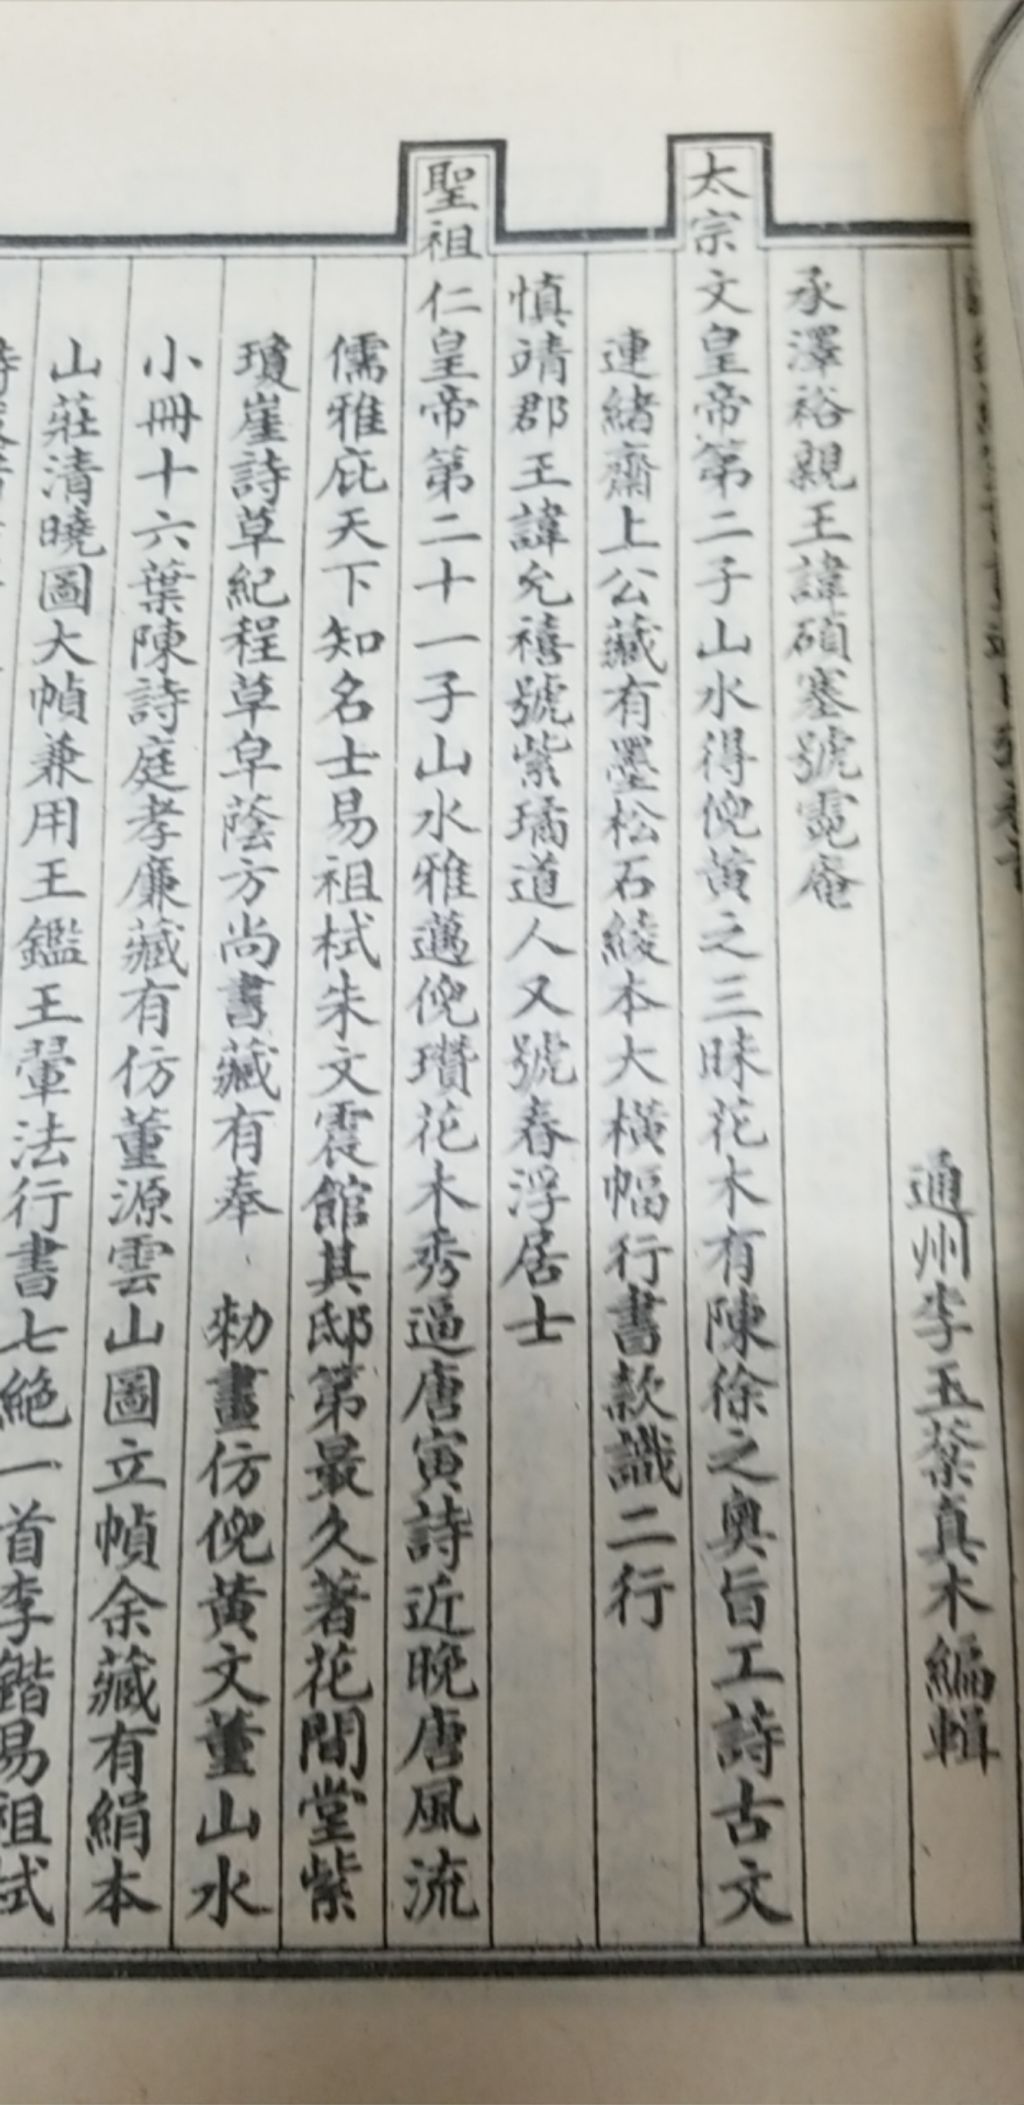 通州李玉棻真木編輯
承澤裕親王諱碩塞號霓庵
太宗文皇帝第二子山水得倪黃之三昧花木有陳徐之奧旨工詩古文
連緒齋上公藏有墨松石綾本大橫幅行書款識二行
慎靖郡王諱允禧號紫璚道人又號春浮居士
聖祖仁皇帝第二十一子山水雅邁倪瓚花木秀逼唐寅詩近晚唐風流
儒雅庇天下知名士易祖栻朱文震館其邸第最久著花間堂紫
瓊崖詩草紀程草皁蔭方尚書藏有奉 勅畫仿倪黃文董山水
小冊十六葉陳詩庭孝廉藏有仿董源雲山圖立幀余藏有絹本
山莊清曉圖大幀兼用王鑑王翬法行書七絕一首李鍇易祖栻